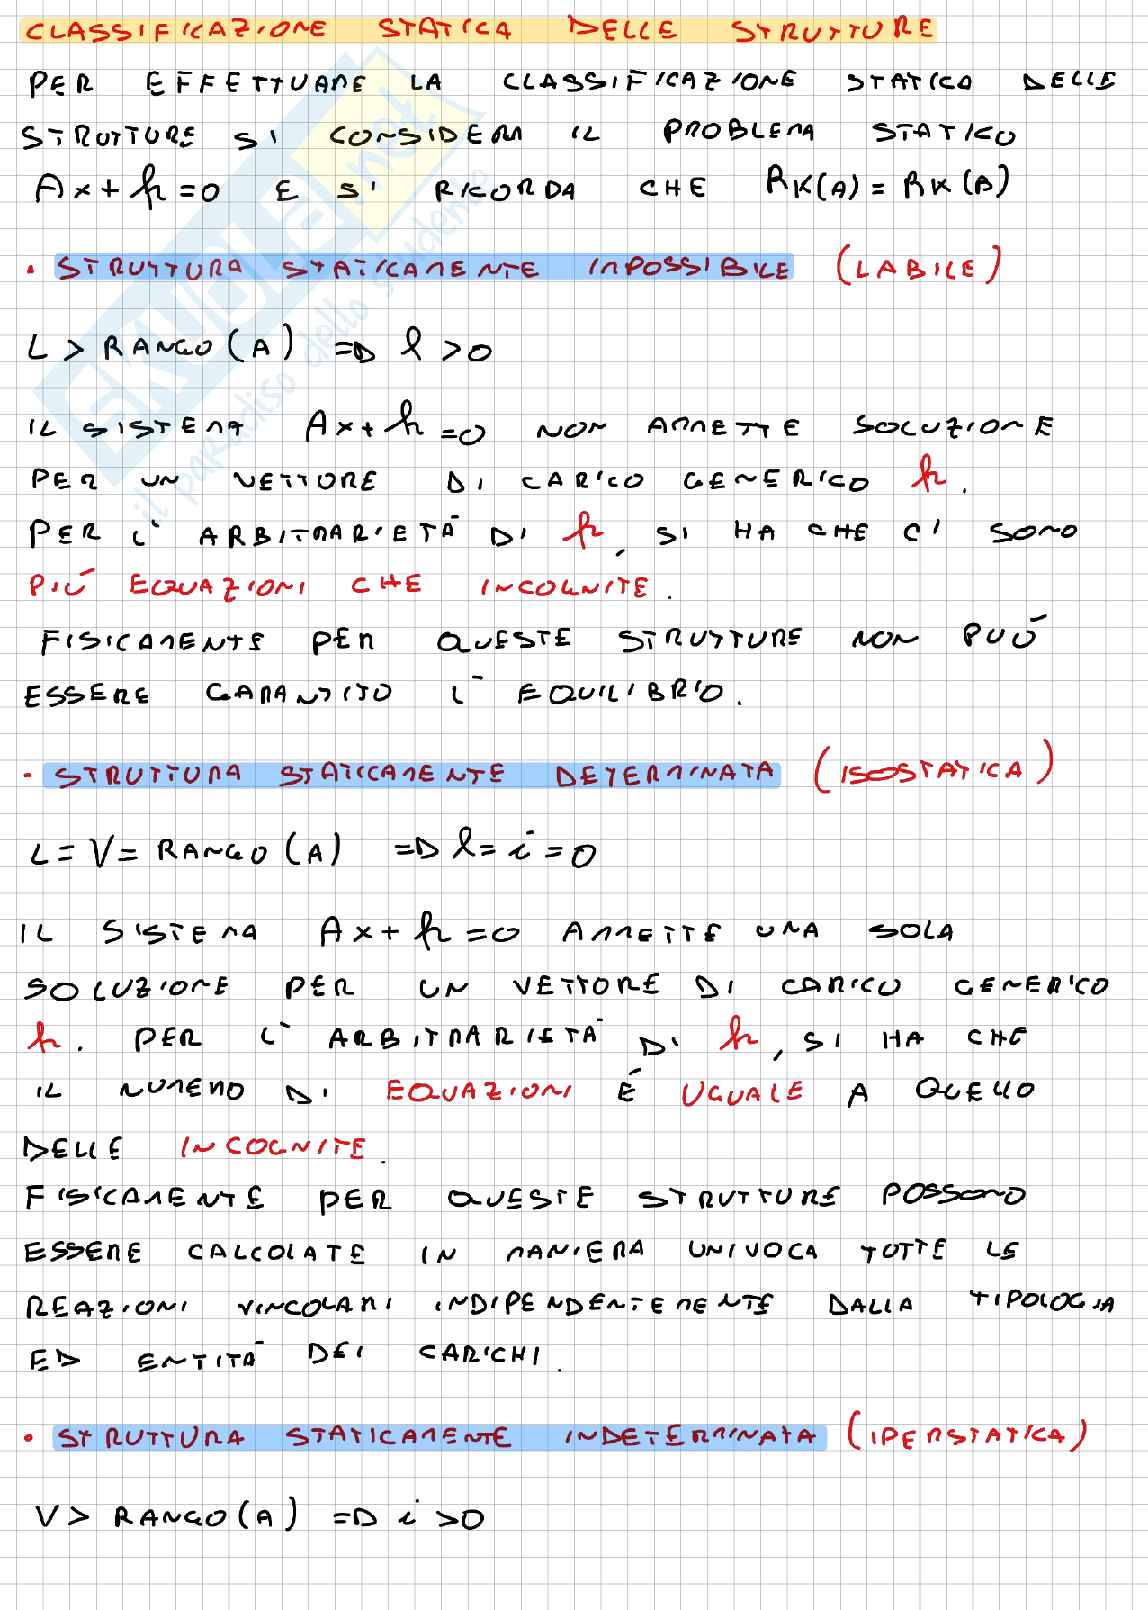 CLASSIFICAZIONE STATICA DELLE STRUTTURE
PER EFFETTUARE LA CLASSIFICAZIONE STATICA DELLE
STRUTTURE SI CONSIDERA IL PROBLEMA STATICO
Ax + h = 0 E SI RICORDA CHE RK(A) = RK(B)
• STRUTTURA STATICAMENTE IMPOSSIBILE (LABILE)
L > RANGO(A) => l > 0
IL SISTEMA Ax + h = 0 NON AMMETTE SOLUZIONE
PER UN VETTORE DI CARICO GENERICO h.
PER L'ARBITRARIETÀ DI h, SI HA CHE CI SONO
PIÙ EQUAZIONI CHE INCOGNITE.
FISICAMENTE PER QUESTE STRUTTURE NON PUÒ
ESSERE GARANTITO L'EQUILIBRIO.
• STRUTTURA STATICAMENTE DETERMINATA (ISOSTATICA)
L = V = RANGO(A) => l = i = 0
IL SISTEMA Ax + h = 0 AMMETTE UNA SOLA
SOLUZIONE PER UN VETTORE DI CARICO GENERICO
h. PER L'ARBITRARIETÀ DI h, SI HA CHE
IL NUMERO DI EQUAZIONI È UGUALE A QUELLO
DELLE INCOGNITE.
FISICAMENTE PER QUESTE STRUTTURE POSSONO
ESSERE CALCOLATE IN MANIERA UNIVOCA TUTTE LE
REAZIONI VINCOLARI INDIPENDENTEMENTE DALLA TIPOLOGIA
ED ENTITÀ DEI CARICHI.
• STRUTTURA STATICAMENTE INDETERMINATA (IPERSTATICA)
V > RANGO(A) => i > 0
SKUOLA.net
il paradiso dello studente